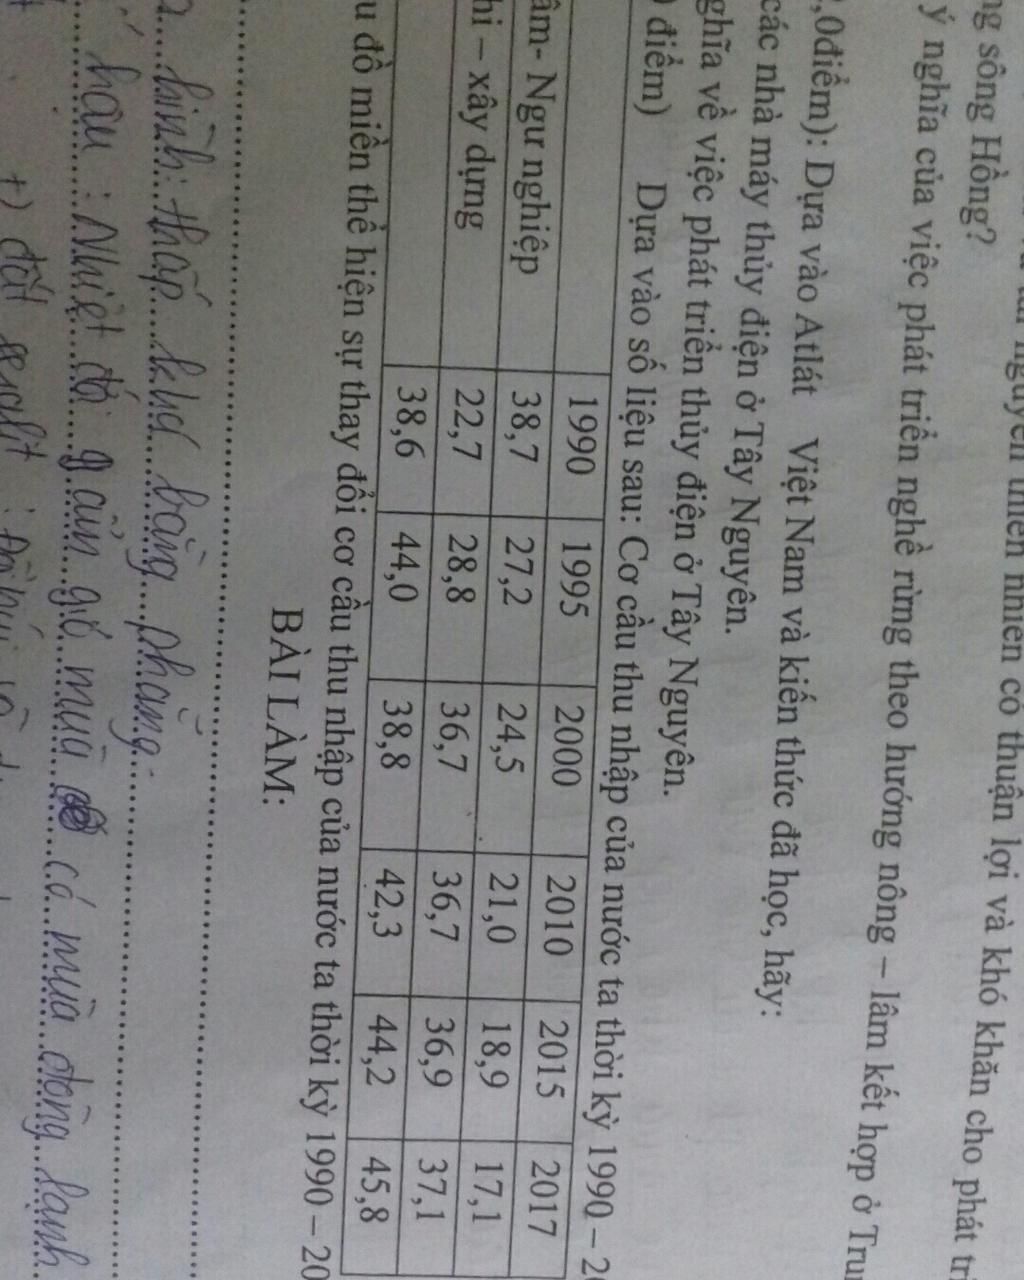 nguyên thiên nhiên có thuận lợi và khó khăn cho phát
sông Hồng?
ý nghĩa của việc phát triển nghề rừng theo hướng nông – lâm kết hợp ở
,0điểm): Dựa vào Atlát Việt Nam và kiến thức đã học, hãy:
các nhà máy thủy điện ở Tây Nguyên.
nghĩa về việc phát triển thủy điện ở Tây Nguyên.
điểm) Dựa vào số liệu sau: Cơ cấu thu nhập của nước ta thời kỳ 1990 – 2
1990 1995 2000 2010 2015 2017
âm- Ngư nghiệp 38,7 27,2 24,5 21,0 18,9 17,1
– xây dựng 22,7 28,8 36,7 36,7 36,9 37,1
38,6 44,0 38,8 42,3 44,2 45,8
đồ miền thể hiện sự thay đổi cơ cấu thu nhập của nước ta thời kỳ 1990 – 20
BÀI LÀM:
hình: thấp khá bằng phẳng.
hậu : Nhiệt đới gần gió mùa có mùa đông lạnh
đất